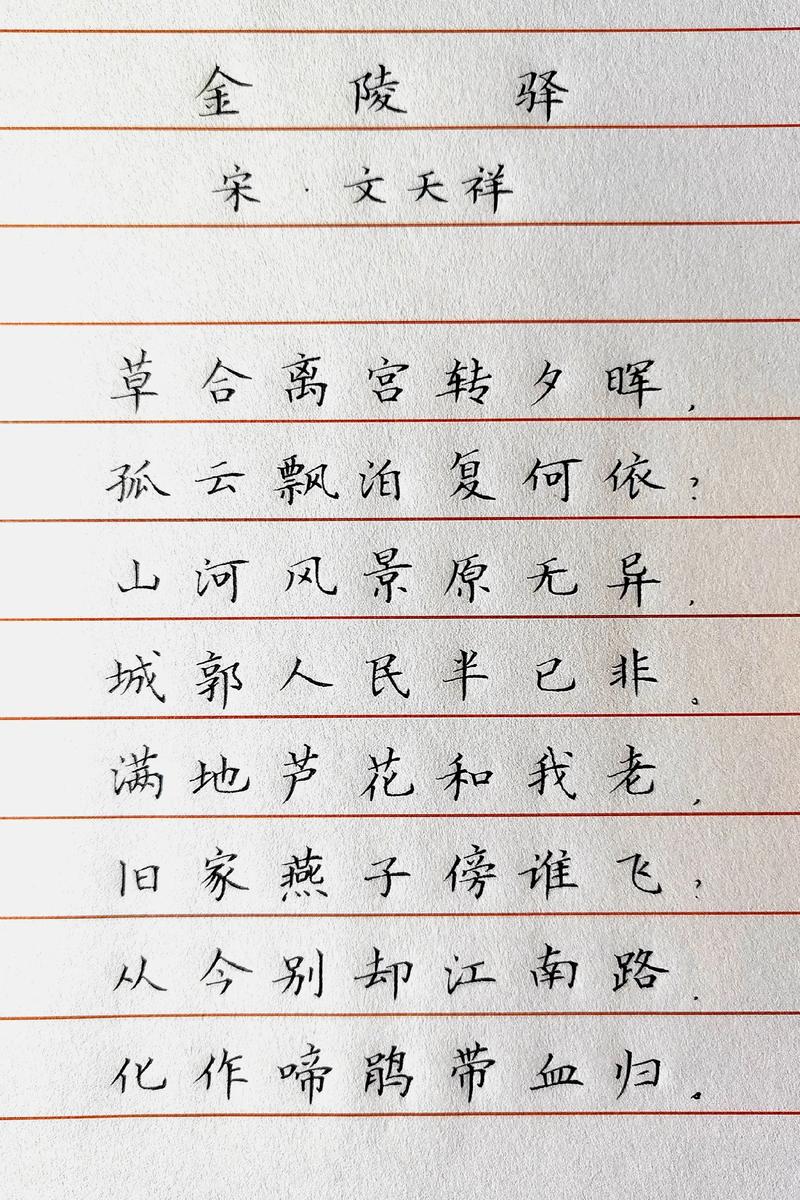 金陵驿
宋·文天祥
草合离宫转夕晖，
孤云飘泊复何依？
山河风景原无异，
城郭人民半已非。
满地芦花和我老，
旧家燕子傍谁飞？
从今别却江南路，
化作啼鹃带血归。